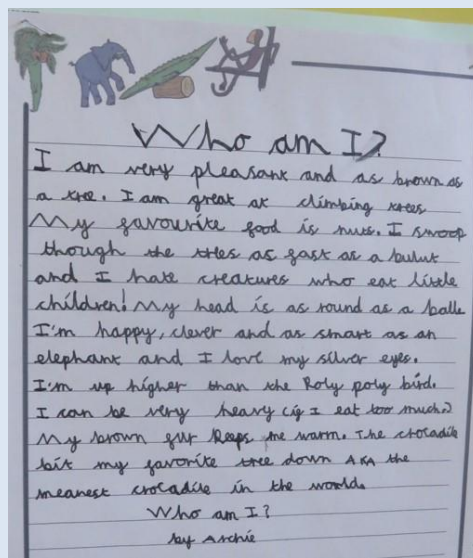 Who am I?
I am very pleasant and as brown as
a tree. I am great at climbing trees
My favourite food is nuts. I swoop
though the trees as fast as a bulut
and I hate creatures who eat little
children! My head is as round as a balle
I'm happy, clever and as smart as an
elephant and I love my silver eyes.
I'm up higher than the Roly poly bird.
I can be very heavy (if I eat too much)
My brown fur keeps me warm. The crocadile
bit my favorite tree down AKA the
meanest crocadile in the world.
Who am I?
by Archie